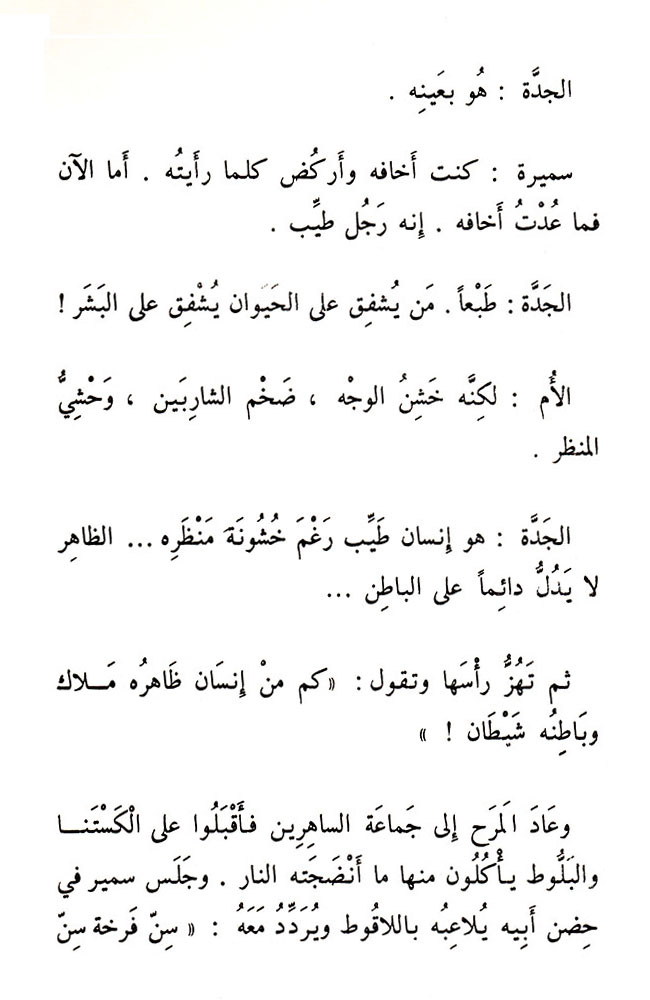 الجدَّة : هُو بعَينِه .
سميرة : كنت أَخافه وأَركُض كلما رأَيتُه . أَما الآن
فما عُدْتُ أَخافه . إِنه رَجُل طيِّب .
الجَدَّة : طَبْعاً . مَن يُشفِق على الحَيَوان يُشْفِق على البَشَر !
الأُم : لكِنَّه خَشِنُ الوجْه ، ضَخْم الشارِبَين ، وَحْشِيُّ
المنظر .
الجَدَّة : هو إِنسان طَيِّب رَغْمَ خُشُونَةَ مَنْظَرِه ... الظاهِر
لا يَدُلُّ دائِماً على الباطِن ...
ثم تَهُزُّ رأْسَها وتقول : «كم منْ إِنسَان ظَاهرُه مَـلاك
وبَاطِنُه شَيْطَان ! »
وعَادَ المَرَح إِلى جَماعَة الساهِرِين فأَقْبَلُوا على الْكَسْتَنـا
والبَلُّوط يأْكُلُون منها ما أَنْضَجَته النار . وجَلَس سمير في
حِضن أَبِيه يُلاعِبُه باللاقُوط ويُرَدِّدُ مَعَهُ : « سِنّ فَرخة سِنّ